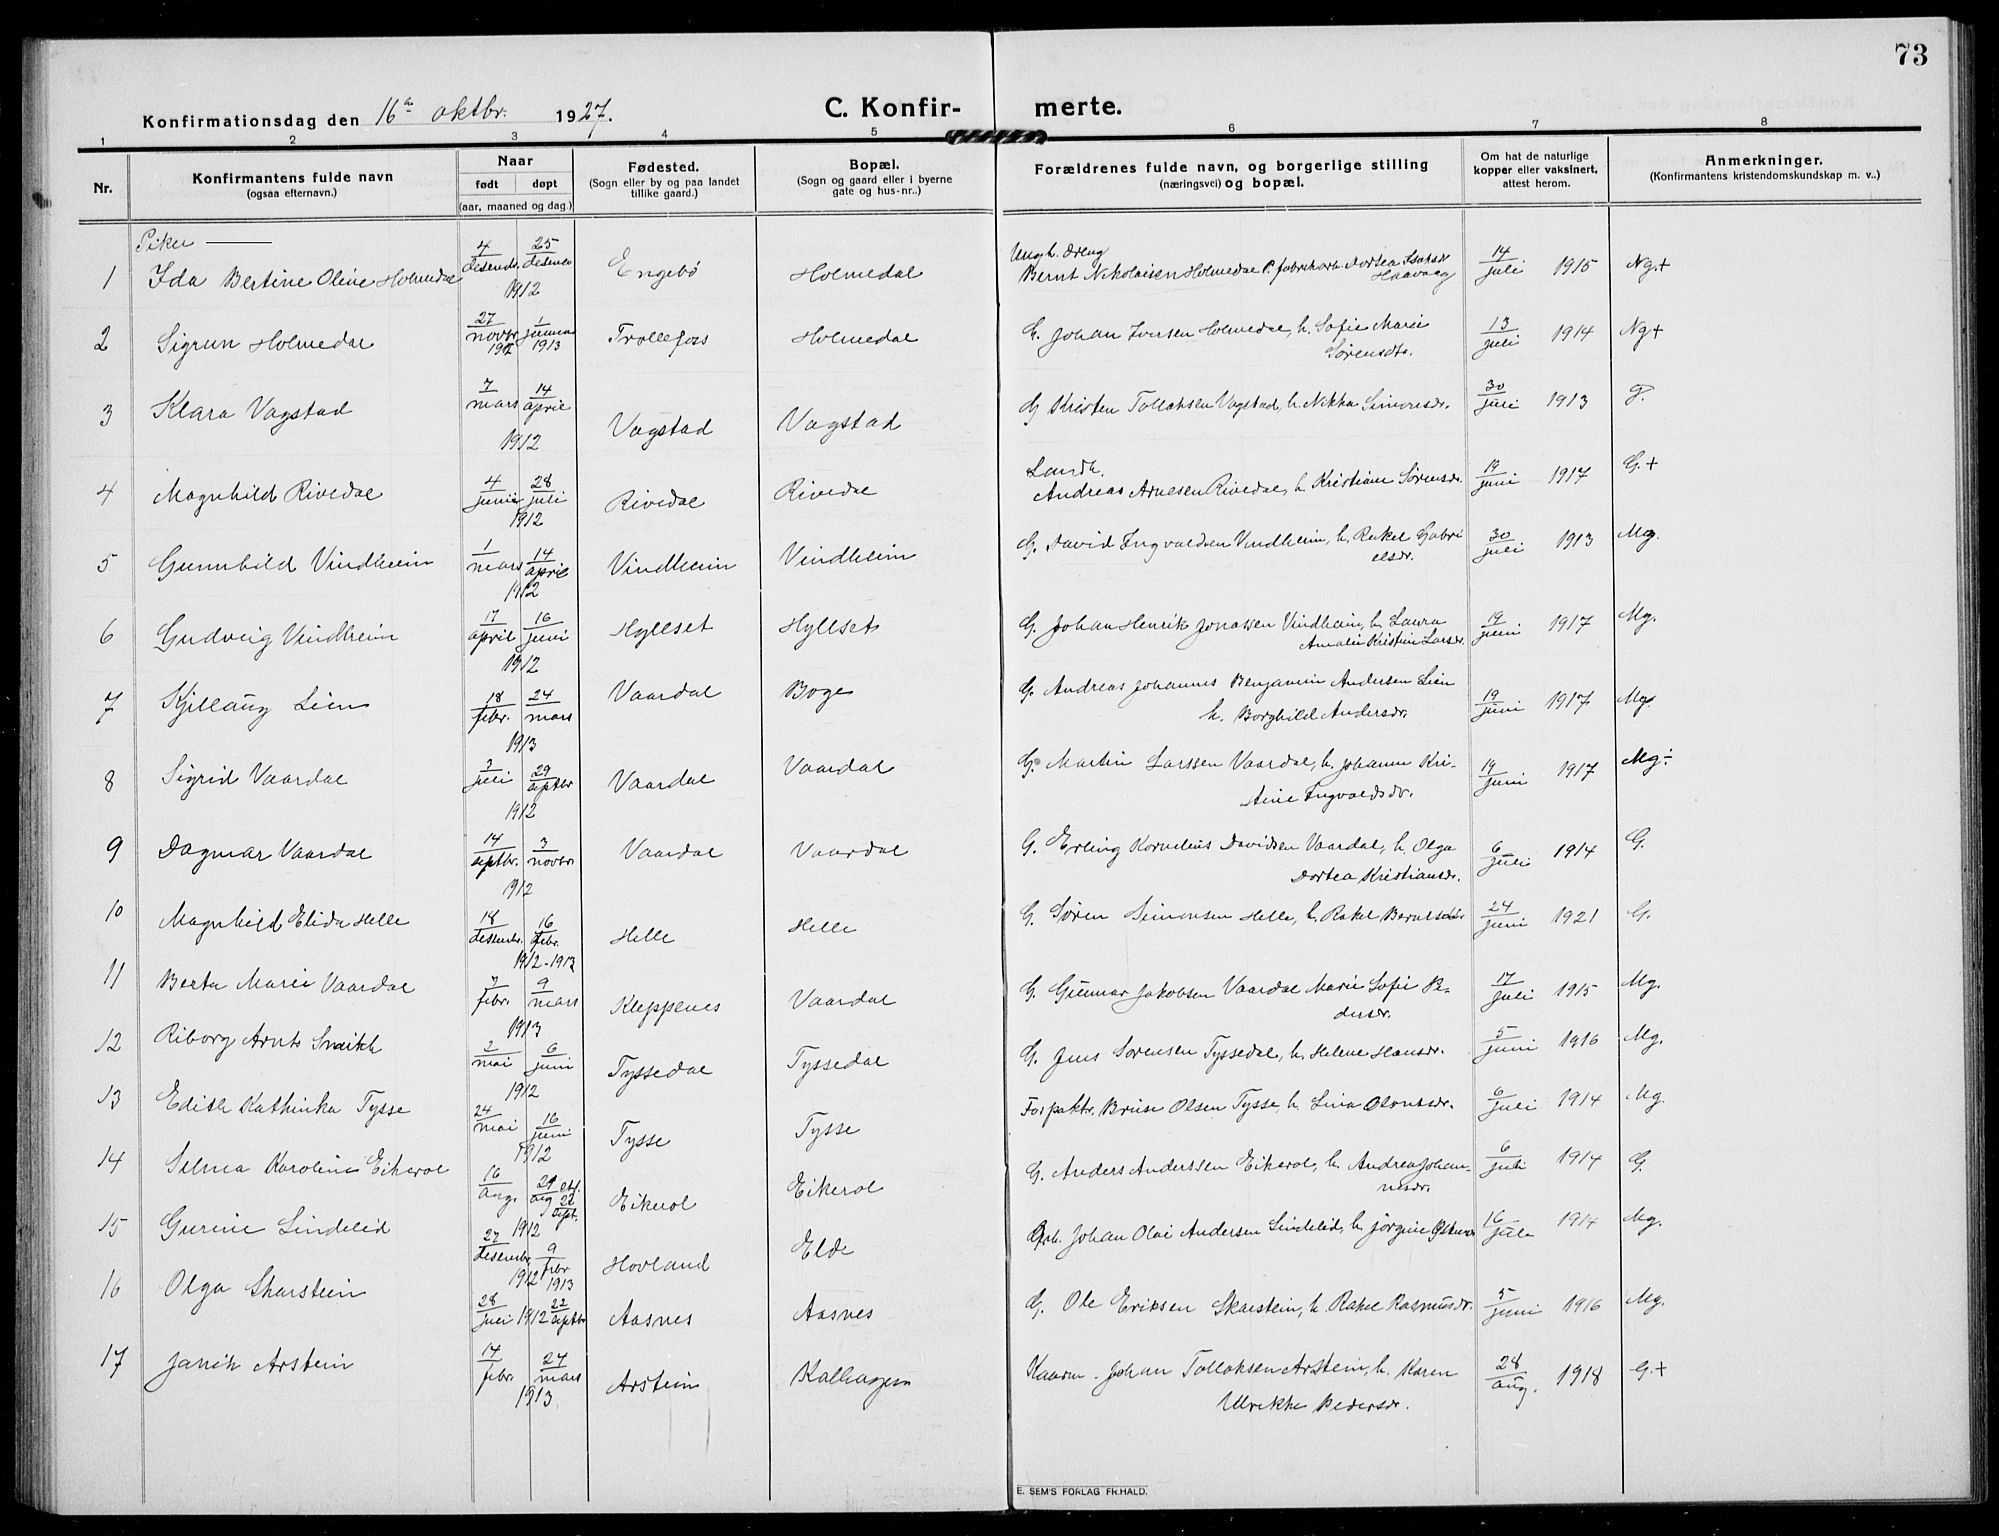 73
Konfirmationsdag den 16de oktbr. 1927. C. Konfir- merte.
1 2 3 4 5 6 7 8
Nr. Konfirmantens fulde navn (ogsaa efternavn.) Naar født døpt (aar, maaned og dag.) Fødested. (Sogn eller by og paa landet tillike gaard.) Bopæl. (Sogn og gaard eller i byerne gate og hus-nr..) Forældrenes fulde navn, og borgerlige stilling (næringsvei) og bopæl. Om hat de naturlige kopper eller vaksinert, attest herom. Anmerkninger. (Konfirmantens kristendomskundskap m. v..)
Piker
1 Ida Bertine Oline Holmedal 4 desembr 25 desembr 1912 Engebø Holmedal Ungk. dreng Bernt Nikolaisen Holmedal P. fabrikarb. Dortea Isaksdr Haavaag 14 juli 1915 Ng+
2 Sigrun Holmedal 27 novbr. 1912 1 januar 1913 Trollefos Holmedal G. Johan Iversen Holmedal, h. Sofie Marie Sørensdtr. 13 juli 1914 Ng+
3 Klara Vagstad 7 mars 14 april 1912 Vagstad Vagstad G. Kristen Tollaksen Vagstad, h. Nikka Simonsdr. 30 juli 1913 T.
4 Magnhild Rivedal 4 juni 28 juli 1912 Rivedal Rivedal Landh. Andreas Arnesen Rivedal, h. Kristiane Sørensdr. 19 juni 1917 G.+
5 Gunnhild Vindheim 1 mars 14 april 1912 Vindheim Vindheim G. David Ingvaldsen Vindheim, h. Rakel Gabrielsdr. 30 juli 1913 Mg.
6 Gudveig Vindheim 17 april 16 juni 1912 Hyllset Hyllset G. Johan Henrik Jonassen Vindheim, h. Laura Amalie Kristine Larsdr. 19 juni 1917 Mg.
7 Kjellaug Lien 18 febr. 24 mars 1913 Vaardal Boge G. Andreas Johannes Benjamin Andersen Lien h. Borghild Andersdr. 19 juni 1917 Mg.
8 Sigrid Vaardal 3 juli 29 septbr 1912 Vaardal Vaardal G. Martin Larssen Vaardal, h. Johanne Kristine Ingvaldsdr. 19 juni 1917 Mg÷
9 Dagmar Vaardal 14 septbr. 3 novbr. 1912 Vaardal Vaardal G. Erling Kornelius Davidsen Vaardal, h. Olga Dortea Kristiansdr. 6 juli 1914 G.
10 Magnhild Elida Helle 18 desembr. 16 febr. 1912-1913 Helle Helle G. Søren Simonsen Helle, h. Rakel Berntsdtr. 24 juni 1921 G.
11 Berta Marie Vaardal 7 febr. 9 mars 1913 Kleppenes Vaardal G. Gunnar Jakobsen Vaardal Marie Sofie Pedersdr. 17 juli 1915 Mg.
12 Riborg Arnts 2 mai 6 juni 1912 Tyssedal Tyssedal G. Jens Sørensen Tyssedal, h. Helene Hansdr. 5 juni 1916 Mg.
13 Edith Kathinka Tysse 24 mai 16 juni 1912 Tysse Tysse Forpaktr. Brúse Olsen Tysse, h. Lina Olsdr. 6 juli 1914 Mg.
14 Selma Karoline Eikerol 16 aug. 29 aug st. 22 sept. 1912 Eikerol Eikerol G. Anders Anderssen Eikerol, h. Andrea Johannesdr. 6 juli 1914 G.
15 Gurine Lindelid 27 desembr. 1912 9 febr 1913 Hovland Elde Johan Olai Andersen Lindelid, h. Jørgine 16 juli 1914 Mg.
16 Olga Skarstein 28 juli 1912 22 septbr Aasnes Aasnes G. Ole Eriksen Skarstein, h. Rakel Rasmusdr. 5 juni 1916 Mg.
17 Janik Arstein 14 febr. 24 mars 1913 Arstein Kalhagen Kaarm. Johan Tollaksen Arstein, h. Karen Ulrikke Pedersdr. 28 aug. 1918 G.+
E. SEM'S FORLAG FR.HALD.